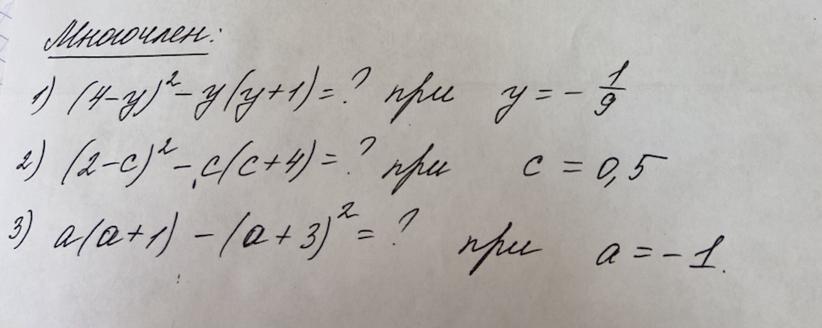 Многочлен:
1) (4-y)² - y(y+1) = ? при y = - 1/9
2) (2-c)² - c(c+4) = ? при c = 0,5
3) a(a+1) - (a+3)² = ? при a = -1.